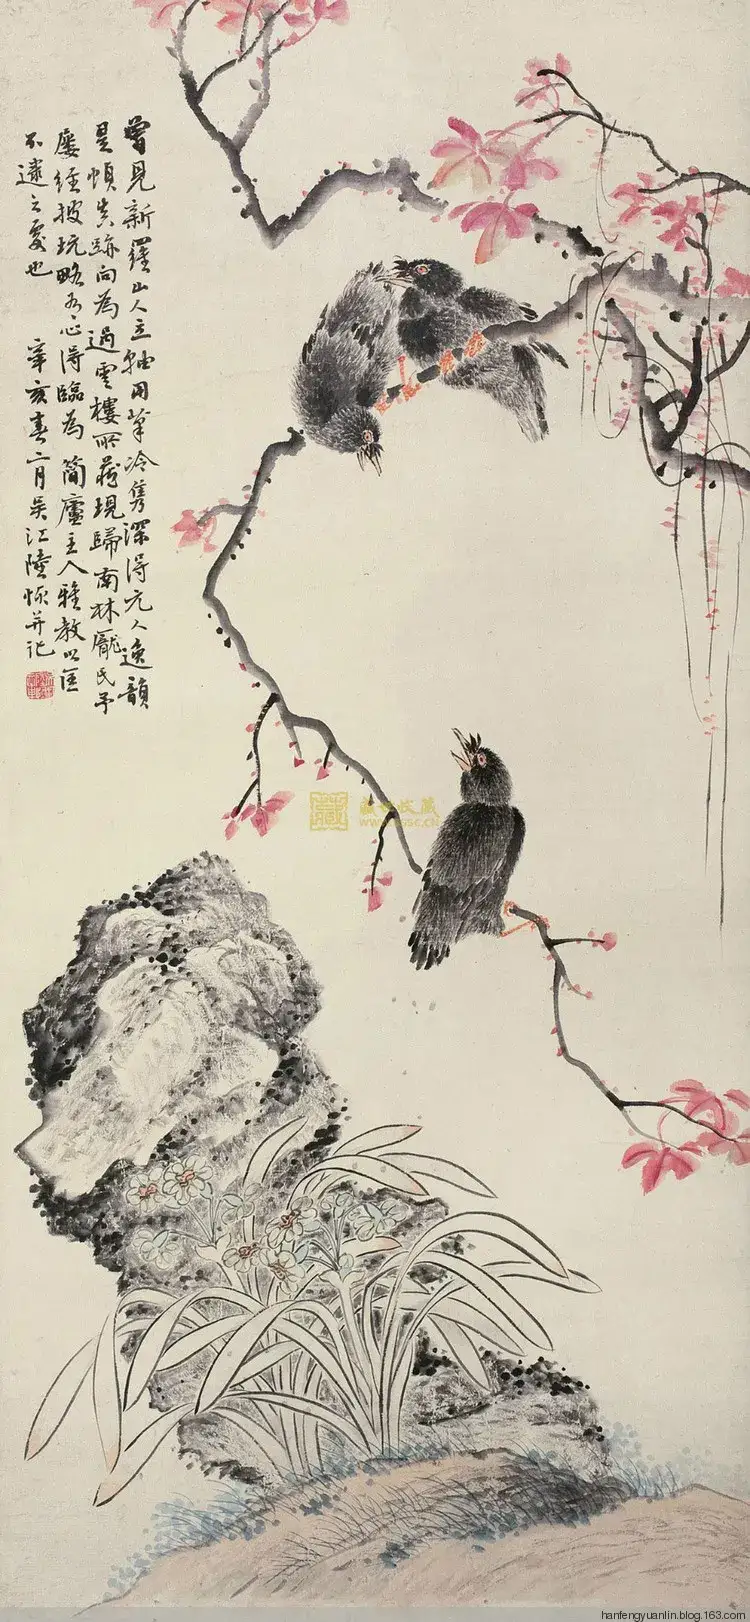 曾見新羅山人立軸用筆冷雋深得元人逸韻
是幀真跡向為過雲樓所藏現歸南林龐氏予
屢經披玩略有心得臨為簡廬主人雅教以匡
不逮之處也
辛亥春二月吳江陸恢并記
藏
www. sc.cn
hanfengyuanlin.blog.163.com